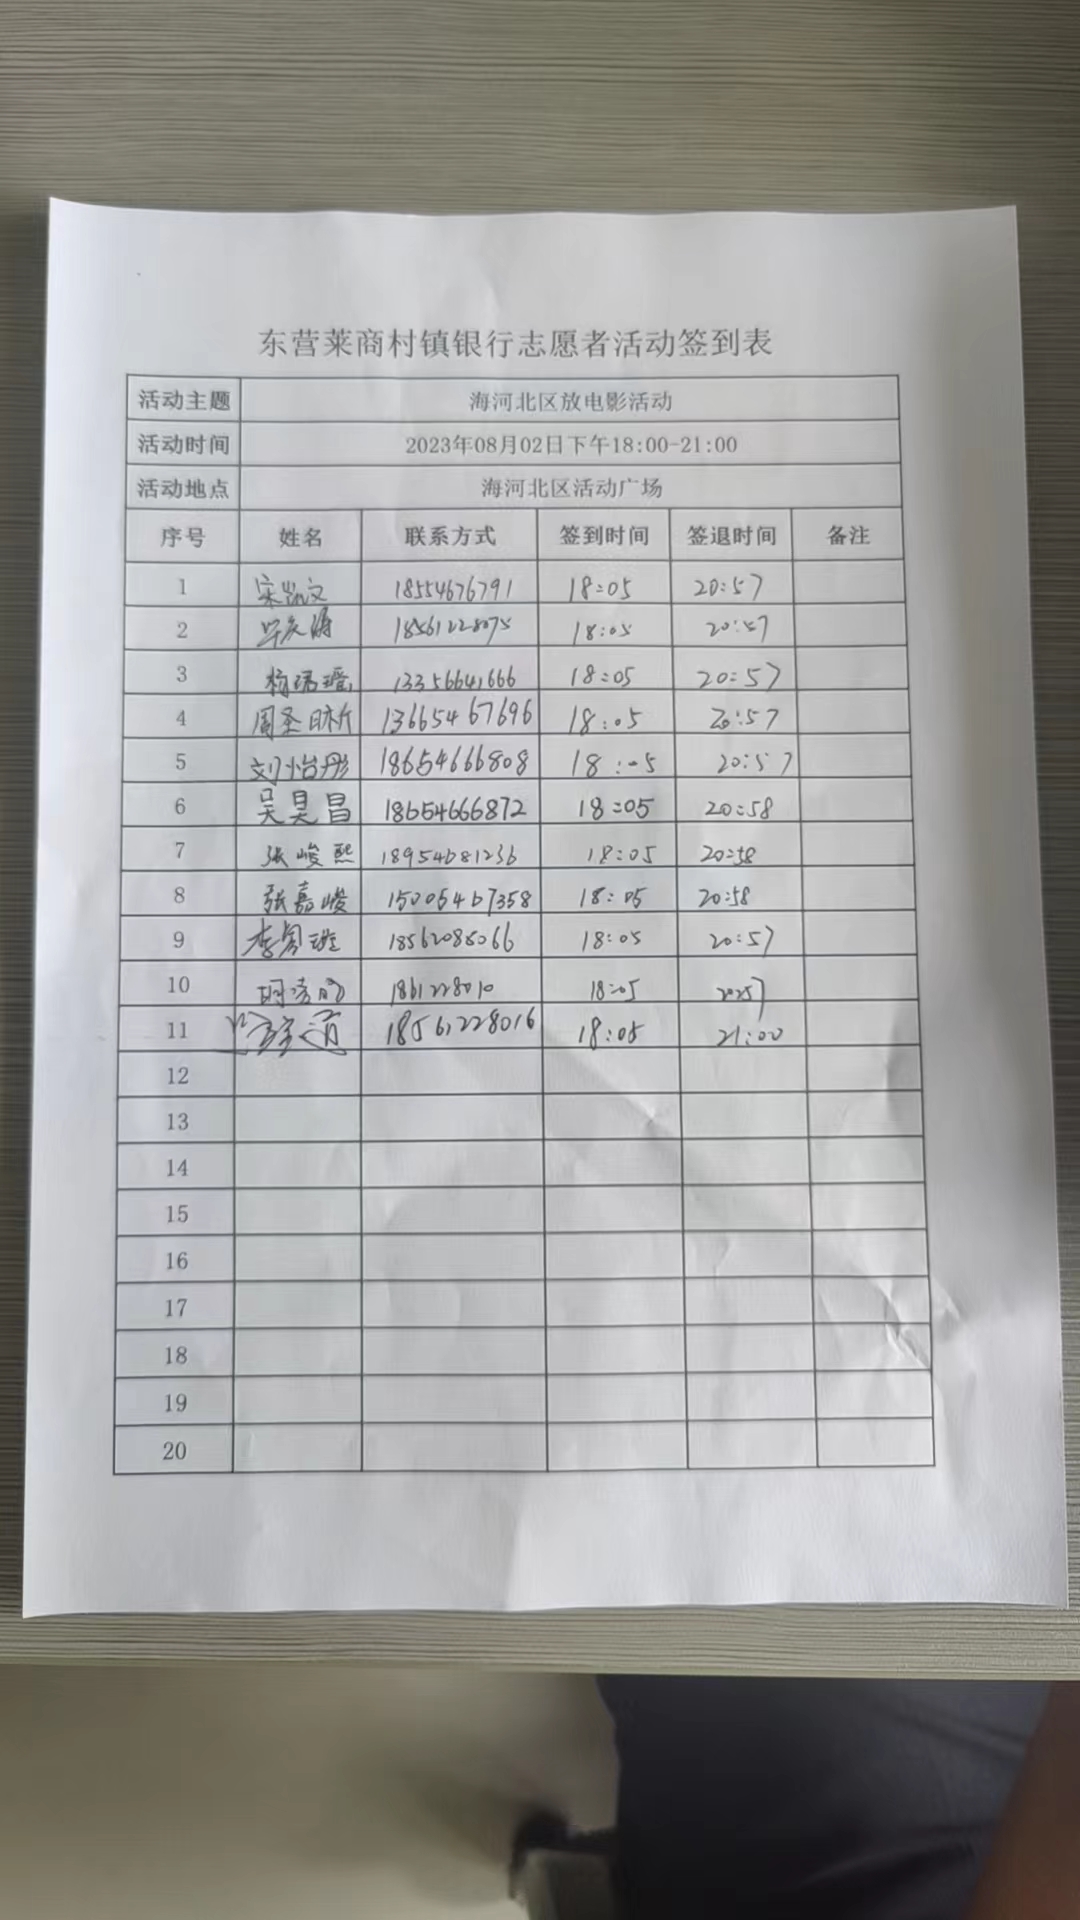 东营莱商村镇银行志愿者活动签到表
活动主题 海河北区放电影活动
活动时间 2023年08月02日下午18:00-21:00
活动地点 海河北区活动广场
序号 姓名 联系方式 签到时间 签退时间 备注
1 宋凯文 18554676791 18:05 20:57
2 18561228075 18:05 20:57
3 13356641666 18:05 20:57
4 周圣昕 13665467696 18:05 20:57
5 刘怡彤 18654666808 18:05 20:57
6 吴昊昌 18654666872 18:05 20:58
7 张峻熙 18954681236 18:05 20:58
8 张嘉峻 15005467358 18:05 20:58
9 18562088066 18:05 20:57
10 1861228010 18:05 2057
11 18561228016 18:05 21:00
12
13
14
15
16
17
18
19
20